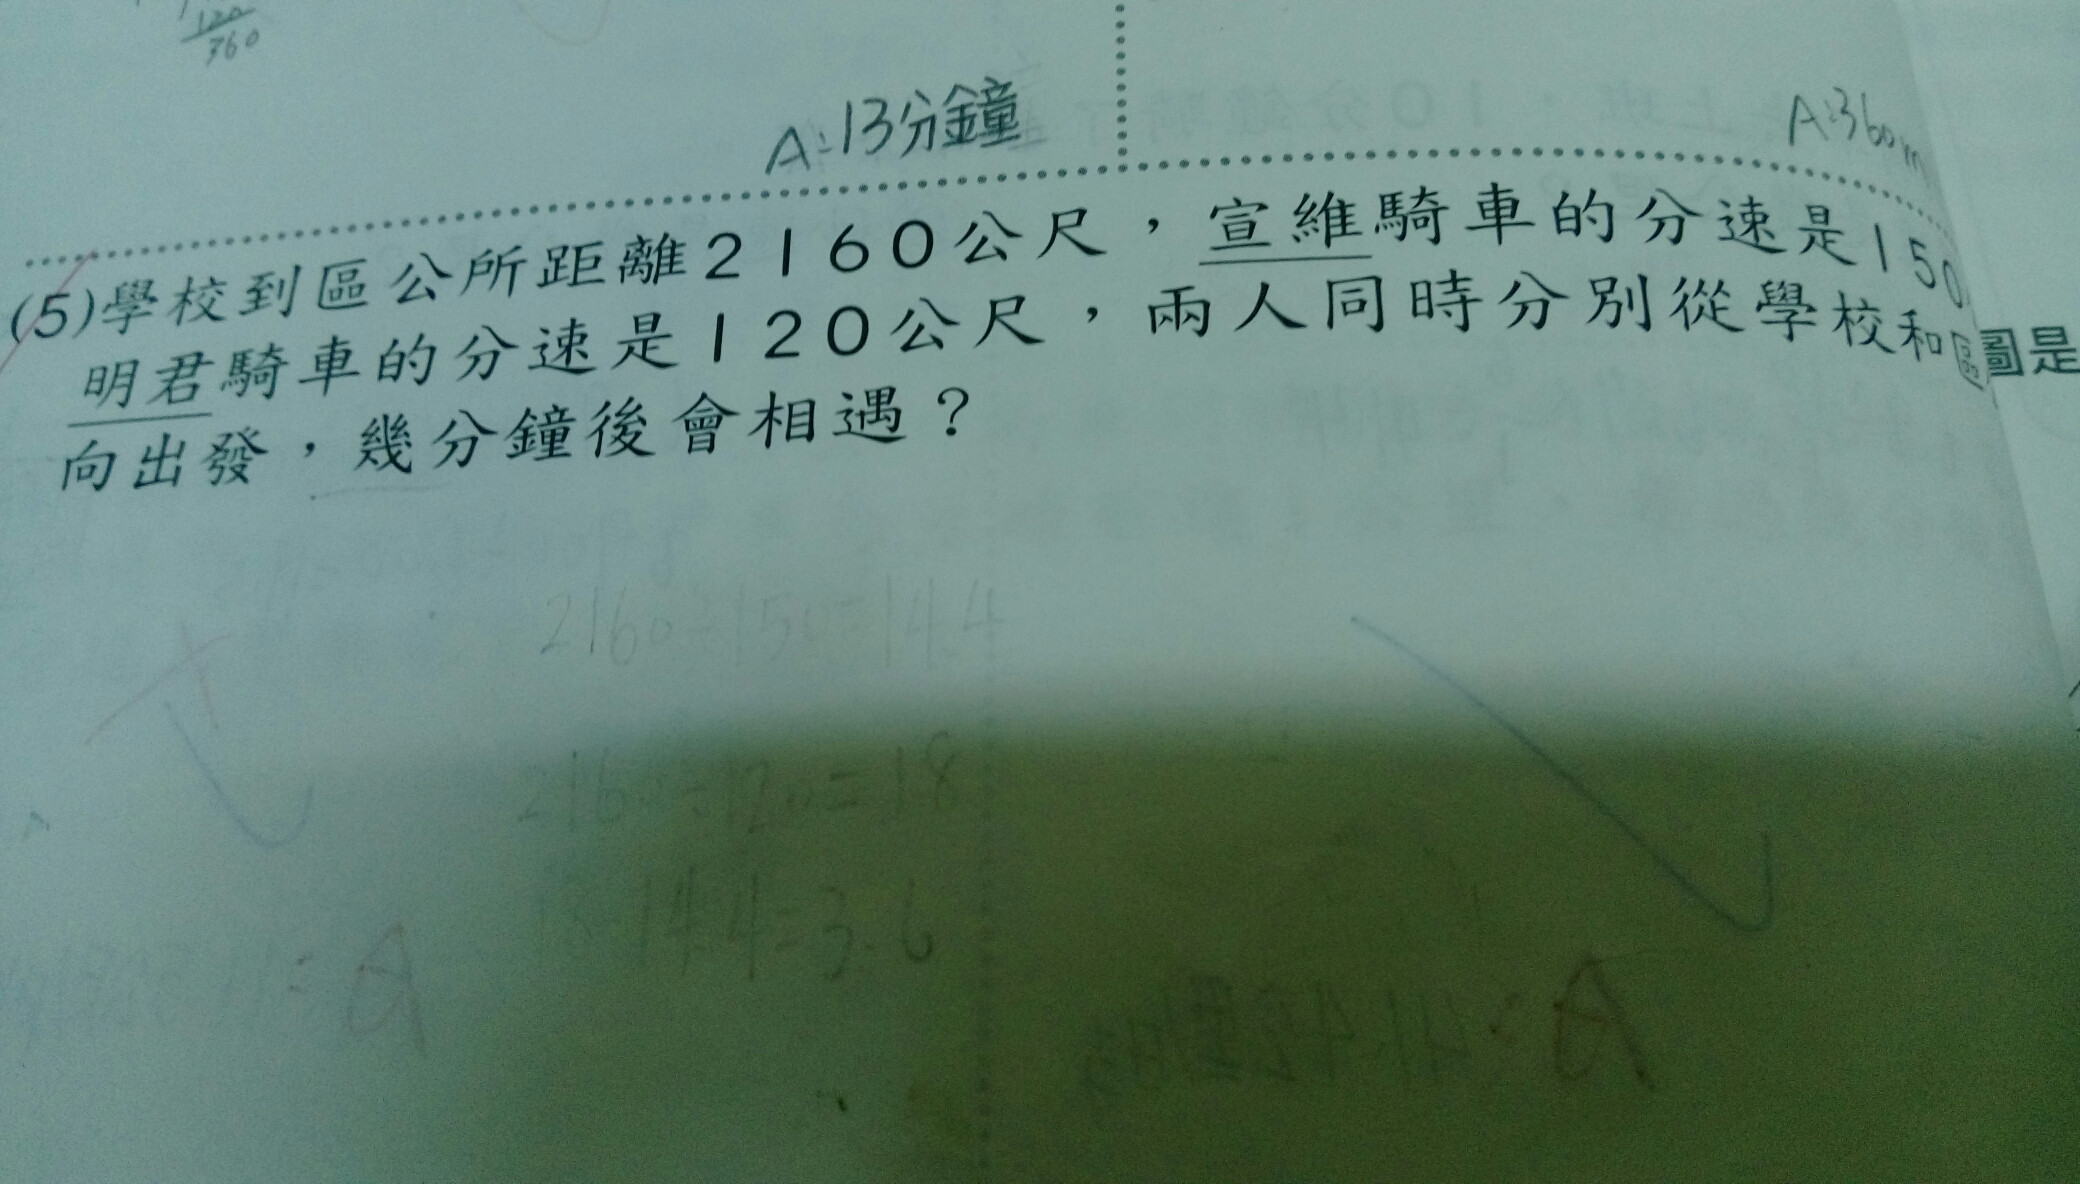 120
360
A:13分鐘
A:360m
(5)學校到區公所距離2160公尺，宣維騎車的分速是150
明君騎車的分速是120公尺，兩人同時分別從學校和區
圖是
向出發，幾分鐘後會相遇？
2160÷150=14.4
2160÷120=18
18-14.4=3.6